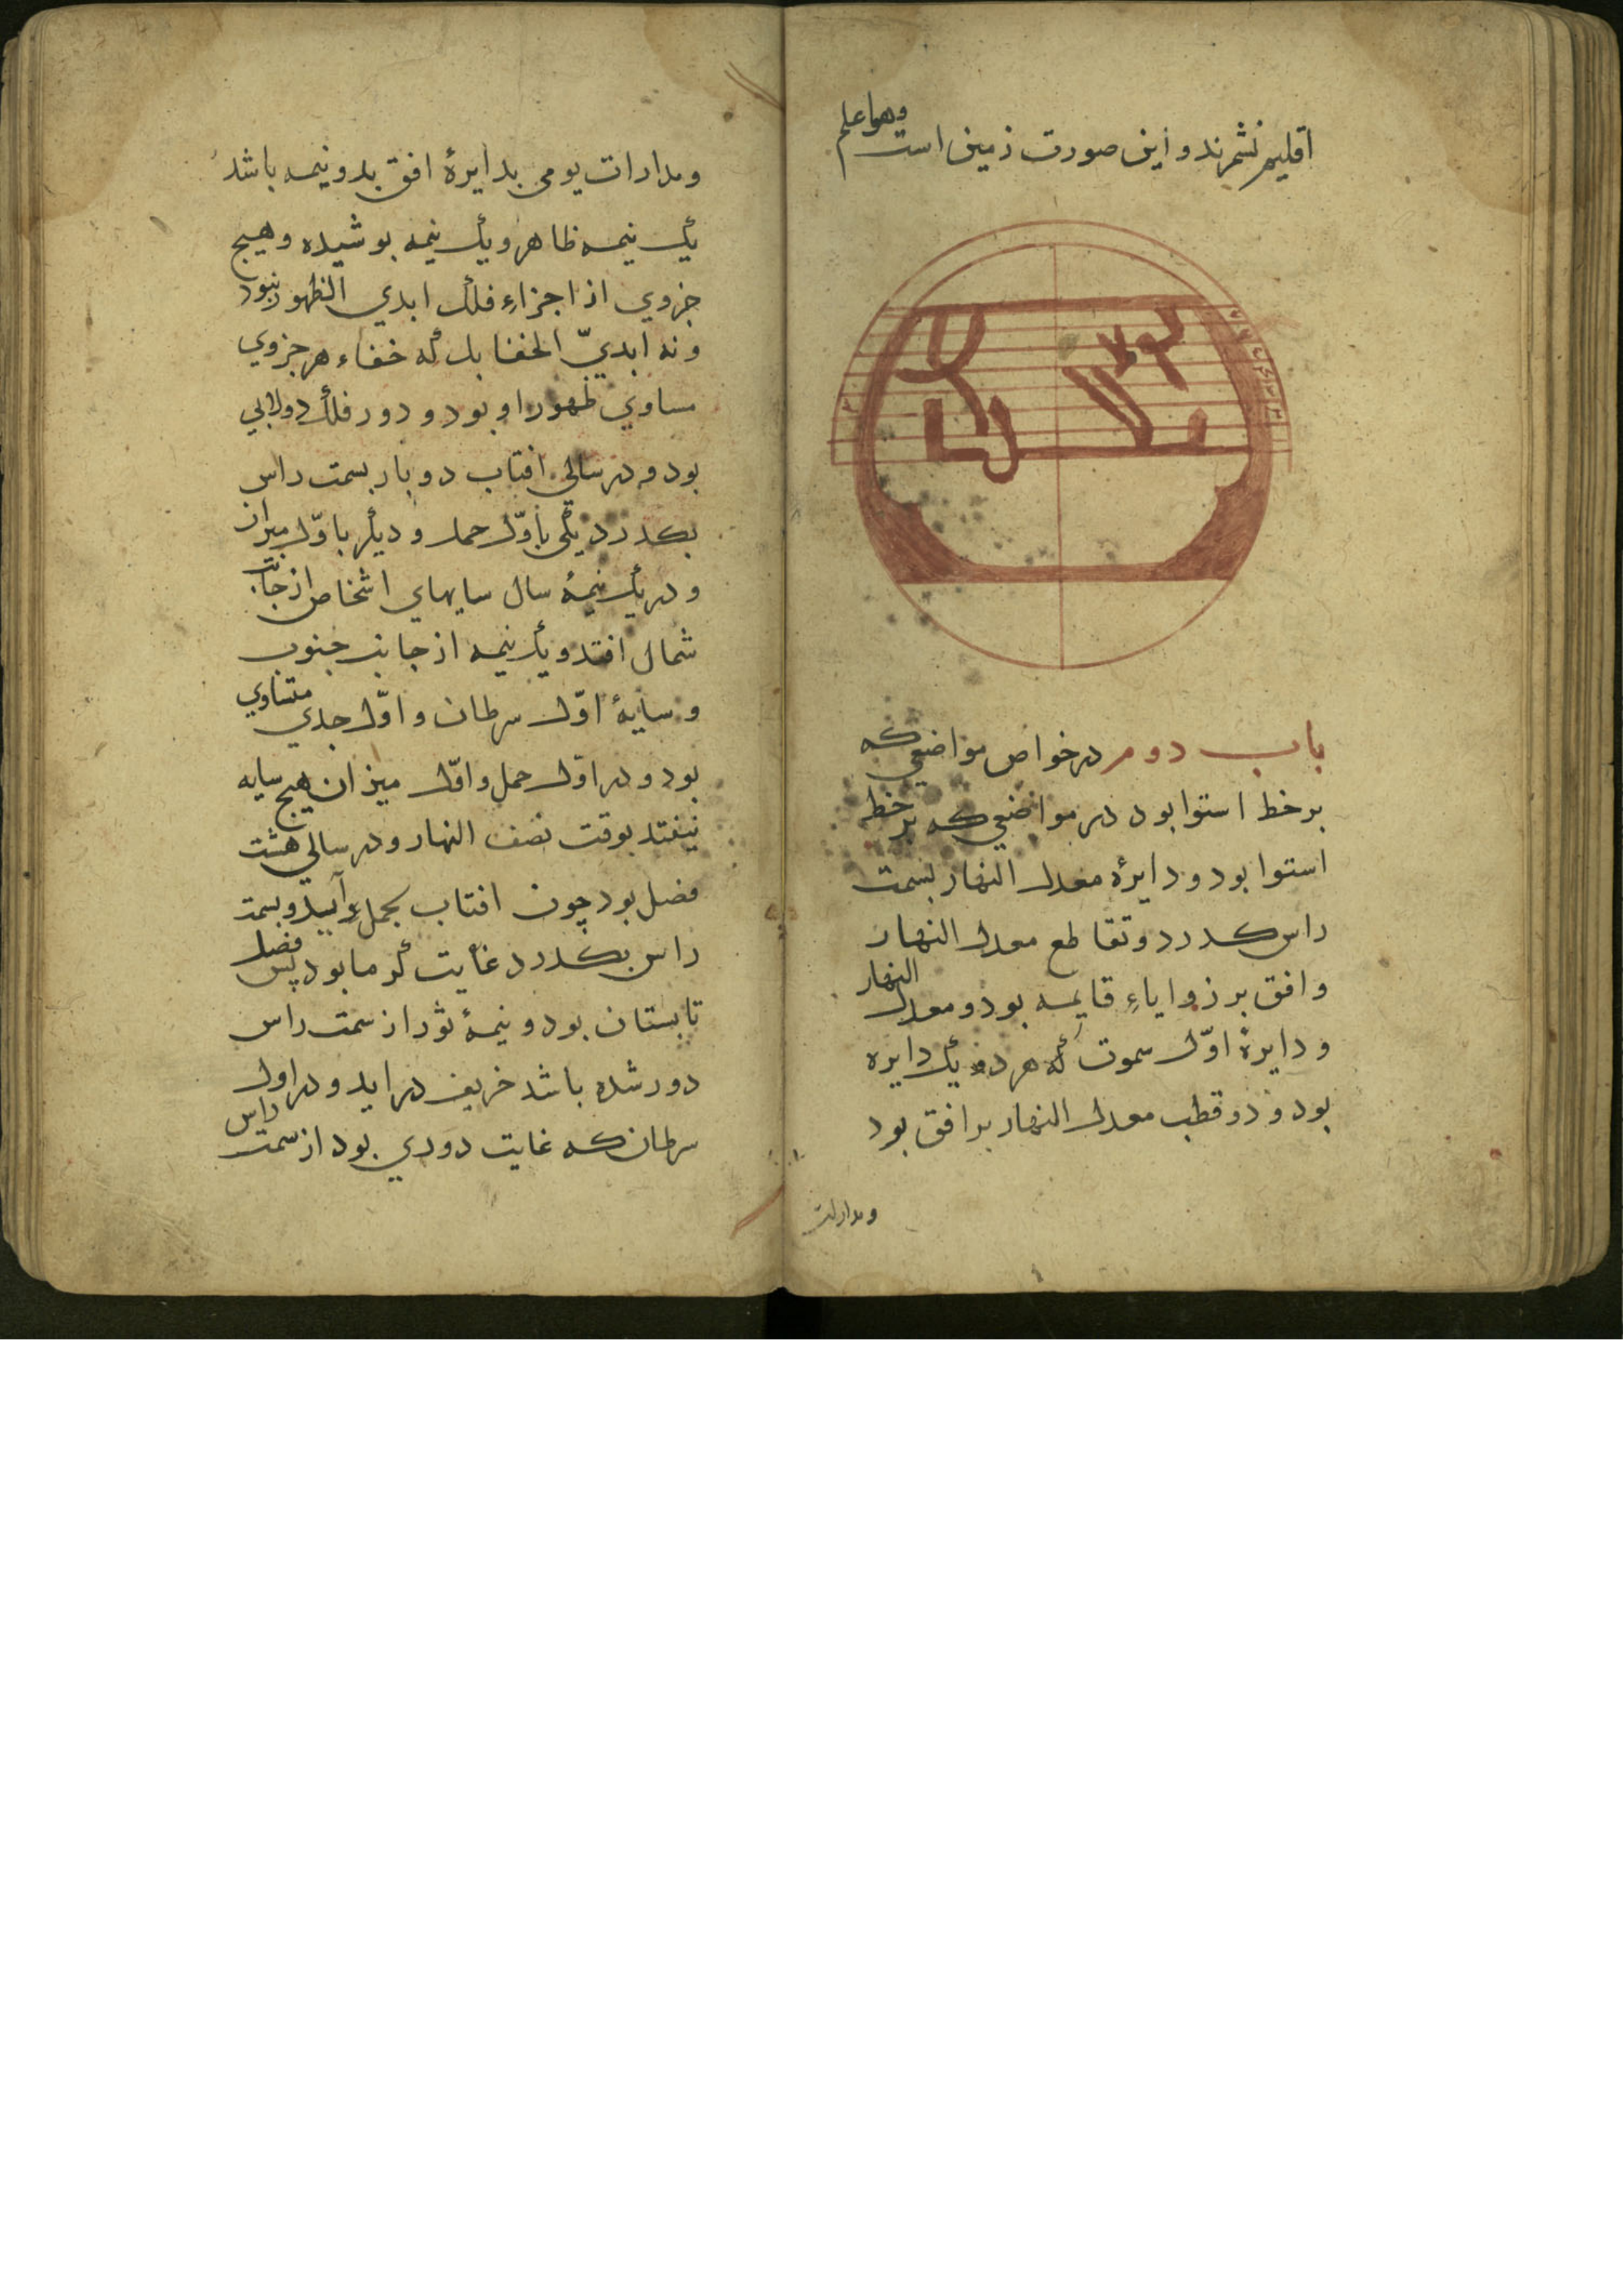 اقلیم نشمرند و این صورت زمین است وهو اعلم
باب دوم در خواص مواضعی که
بر خط استوا بود در مواضعی که بر خط
استوا بود و دایرهٔ معدل النهار بسمت
راس کذرد و تقاطع معدل النهار
وافق بر زوایاءِ قایمه بود و معدل النهار
و دایرهٔ اوّل سموت که هر دو یک دایره
بود و دو قطب معدل النهار بر افق بود
ومدارات
ومدارات یومی بدایرهٔ افق بدو نیمه باشد
یک نیمه ظاهر و یک نیمه بوشیده وهیج
جزوی از اجزاءِ فلک ابدی الظهور نبود
ونه ابدیّ الخفا بل که خفاء هر جزوی
مساوی ظهور او بود و دور فلک دولابی
بود و در سالی افتاب دو بار بسمت راس
بکذرد یکی باوّل حمل و دیگر باوّل میزان
و در یک نیمهٔ سال سایهای اشخاص از جانب
شمال افتد و یک نیمه از جانب جنوب
وسایهٔ اوّل سرطان و اوّل جدی متساوی
بود و در اوّل حمل و اوّل میزان هیج سایه
نیفتد بوقت نصف النهار و در سالی هشت
فصل بود چون افتاب بحمل آید و بسمت
راس بکذرد غایت گرما بود پس فصل
تابستان بود و نیمهٔ ثور از سمت راس
دور شده باشد خریف در اید و در اول
سرطان که غایت دوری بود از سمت راس